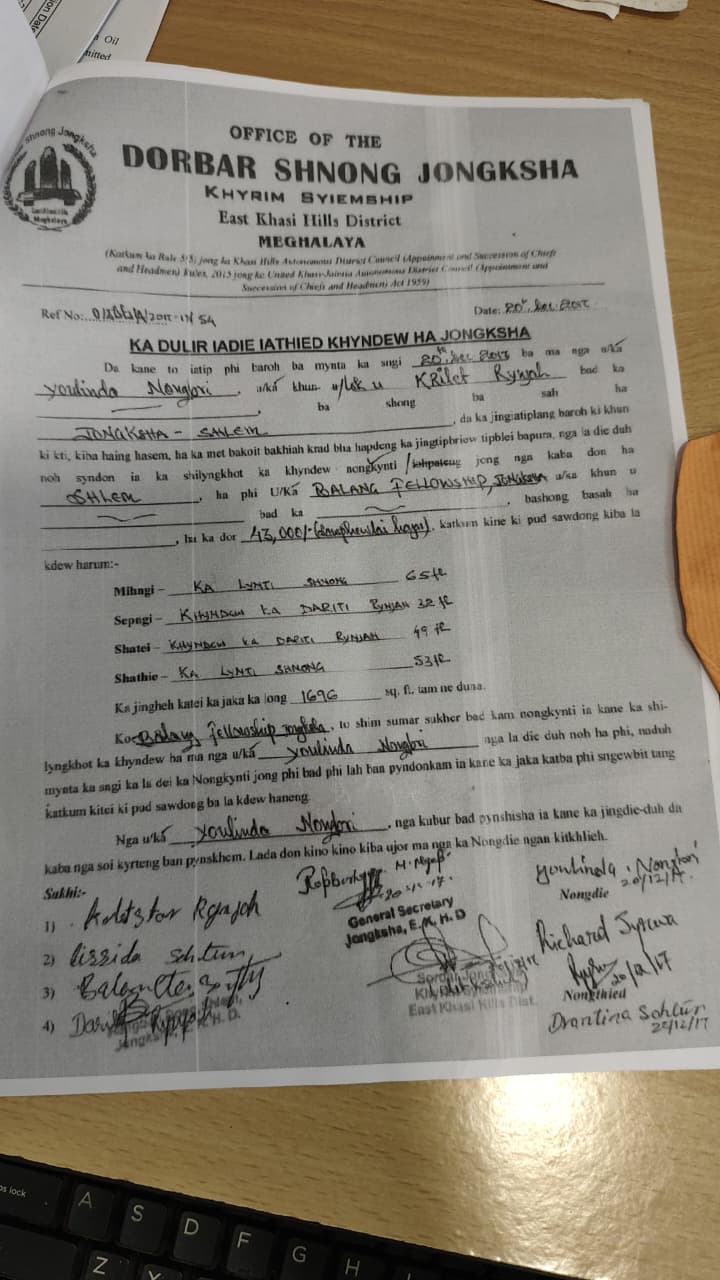 Oil
Shnong Jongksha
Meghalaya
OFFICE OF THE
DORBAR SHNONG JONGKSHA
KHYRIM SYIEMSHIP
East Khasi Hills District
MEGHALAYA
(Katkum ka Rule 5(5) jong ka Khasi Hills Autonomous District Council (Appointment and Succession of Chiefs
and Headmen) Rules, 2015 jong ka United Khasi-Jaintia Autonomous District Council (Appointment and
Succession of Chiefs and Headmen) Act 1959)
Ref No:
Date: 20th Dec.
KA DULIR IADIE IATHIED KHYNDEW HA JONGKSHA
Da kane to iatip phi baroh ba mynta ka sngi 20th Dec ba ma nga u/ká
Youlinda Nongbri, u/ká khun u/lok u Krilet Rynjah bad ka
, ba shong ba sah ha
JONGKSHA - SHLEM, da ka jingiatiplang baroh ki khun
ki kti, kiba haing hasem, ha ka met bakoit bakhiah krad bha hapdeng ka jingtipbriew tipblei bapura, nga la die duh
noh syndon ia ka shilyngkhot ka khyndew nongkynti / jong nga kaba don ha
SHLEM, ha phi U/Ká BALANG FELLOWSHIP, JONGKSHA u/ka khun u
bad ka , bashong basah ha
, ka dor 43,000/-, katkum kine ki pud sawdong kiba la
kdew harum:-
Mihngi - KA LYNTI SHNONG 65 ft
Sepngi - KHYNDEW KA DARITI RYNJAH 32 ft
Shatei - KHYNDEW KA DARITI RYNJAH 49 ft
Shathie - KA LYNTI SHNONG 53 ft
Ka jingheh katei ka jaka ka long 1696 sq. ft. tam ne duna.
Balang Fellowship Jongksha, to shim sumar sukher bad kam nongkynti ia kane ka shi-
lyngkhot ka khyndew ba ma nga u/ká Youlinda Nongbri nga la die duh noh ha phi, naduh
mynta ka sngi ka la dei ka Nongkynti jong phi bad phi lah ban pyndonkam ia kane ka jaka katba phi sngewbit tang
katkum kitei ki pud sawdong ba la kdew haneng.
Nga u/ká Youlinda Nongbri, nga kubur bad pynshisha ia kane ka jingdie-duh da
kaba nga soi kyrteng ban pynskhem. Lada don kino kino kiba ujor ma nga ka Nongdie ngan kitkhlieh.
Sakhi:-
1)
2) Lissida Sohtun
3)
4)
General Secretary
Jongksha, E. K. H. D
East Khasi Hills Dist.
Youlinda. Nongbri
20/12/17
Nongdie
Richard Syiewa
20/12/17
Nongthied
Drantina Sohtun
A
S
D
F
G
H
Z